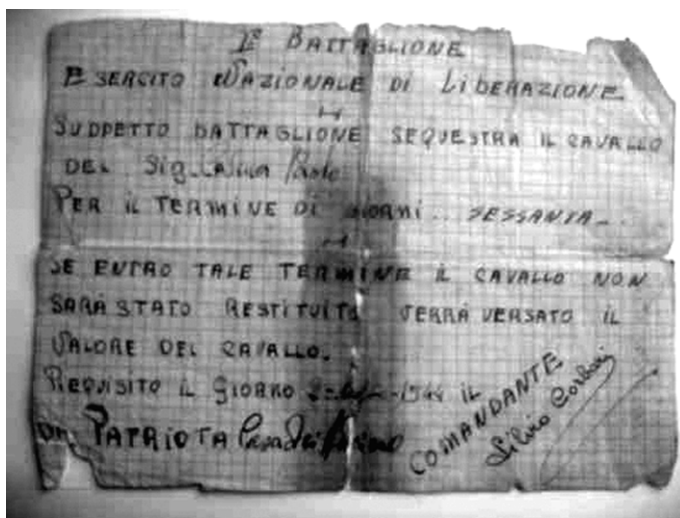 1º BATTAGLIONE
ESERCITO NAZIONALE DI LIBERAZIONE
SUDDETTO BATTAGLIONE SEQUESTRA IL CAVALLO
DEL Sig.
PER IL TERMINE DI GIORNI.. SESSANTA..
SE ENTRO TALE TERMINE IL CAVALLO NON
SARÁ STATO RESTITUITO VERRÁ VERSATO IL
VALORE DEL CAVALLO.
REQUISITO IL GIORNO 1944 IL
DAL PATRIOTA
COMANDANTE
Silvio Corbari